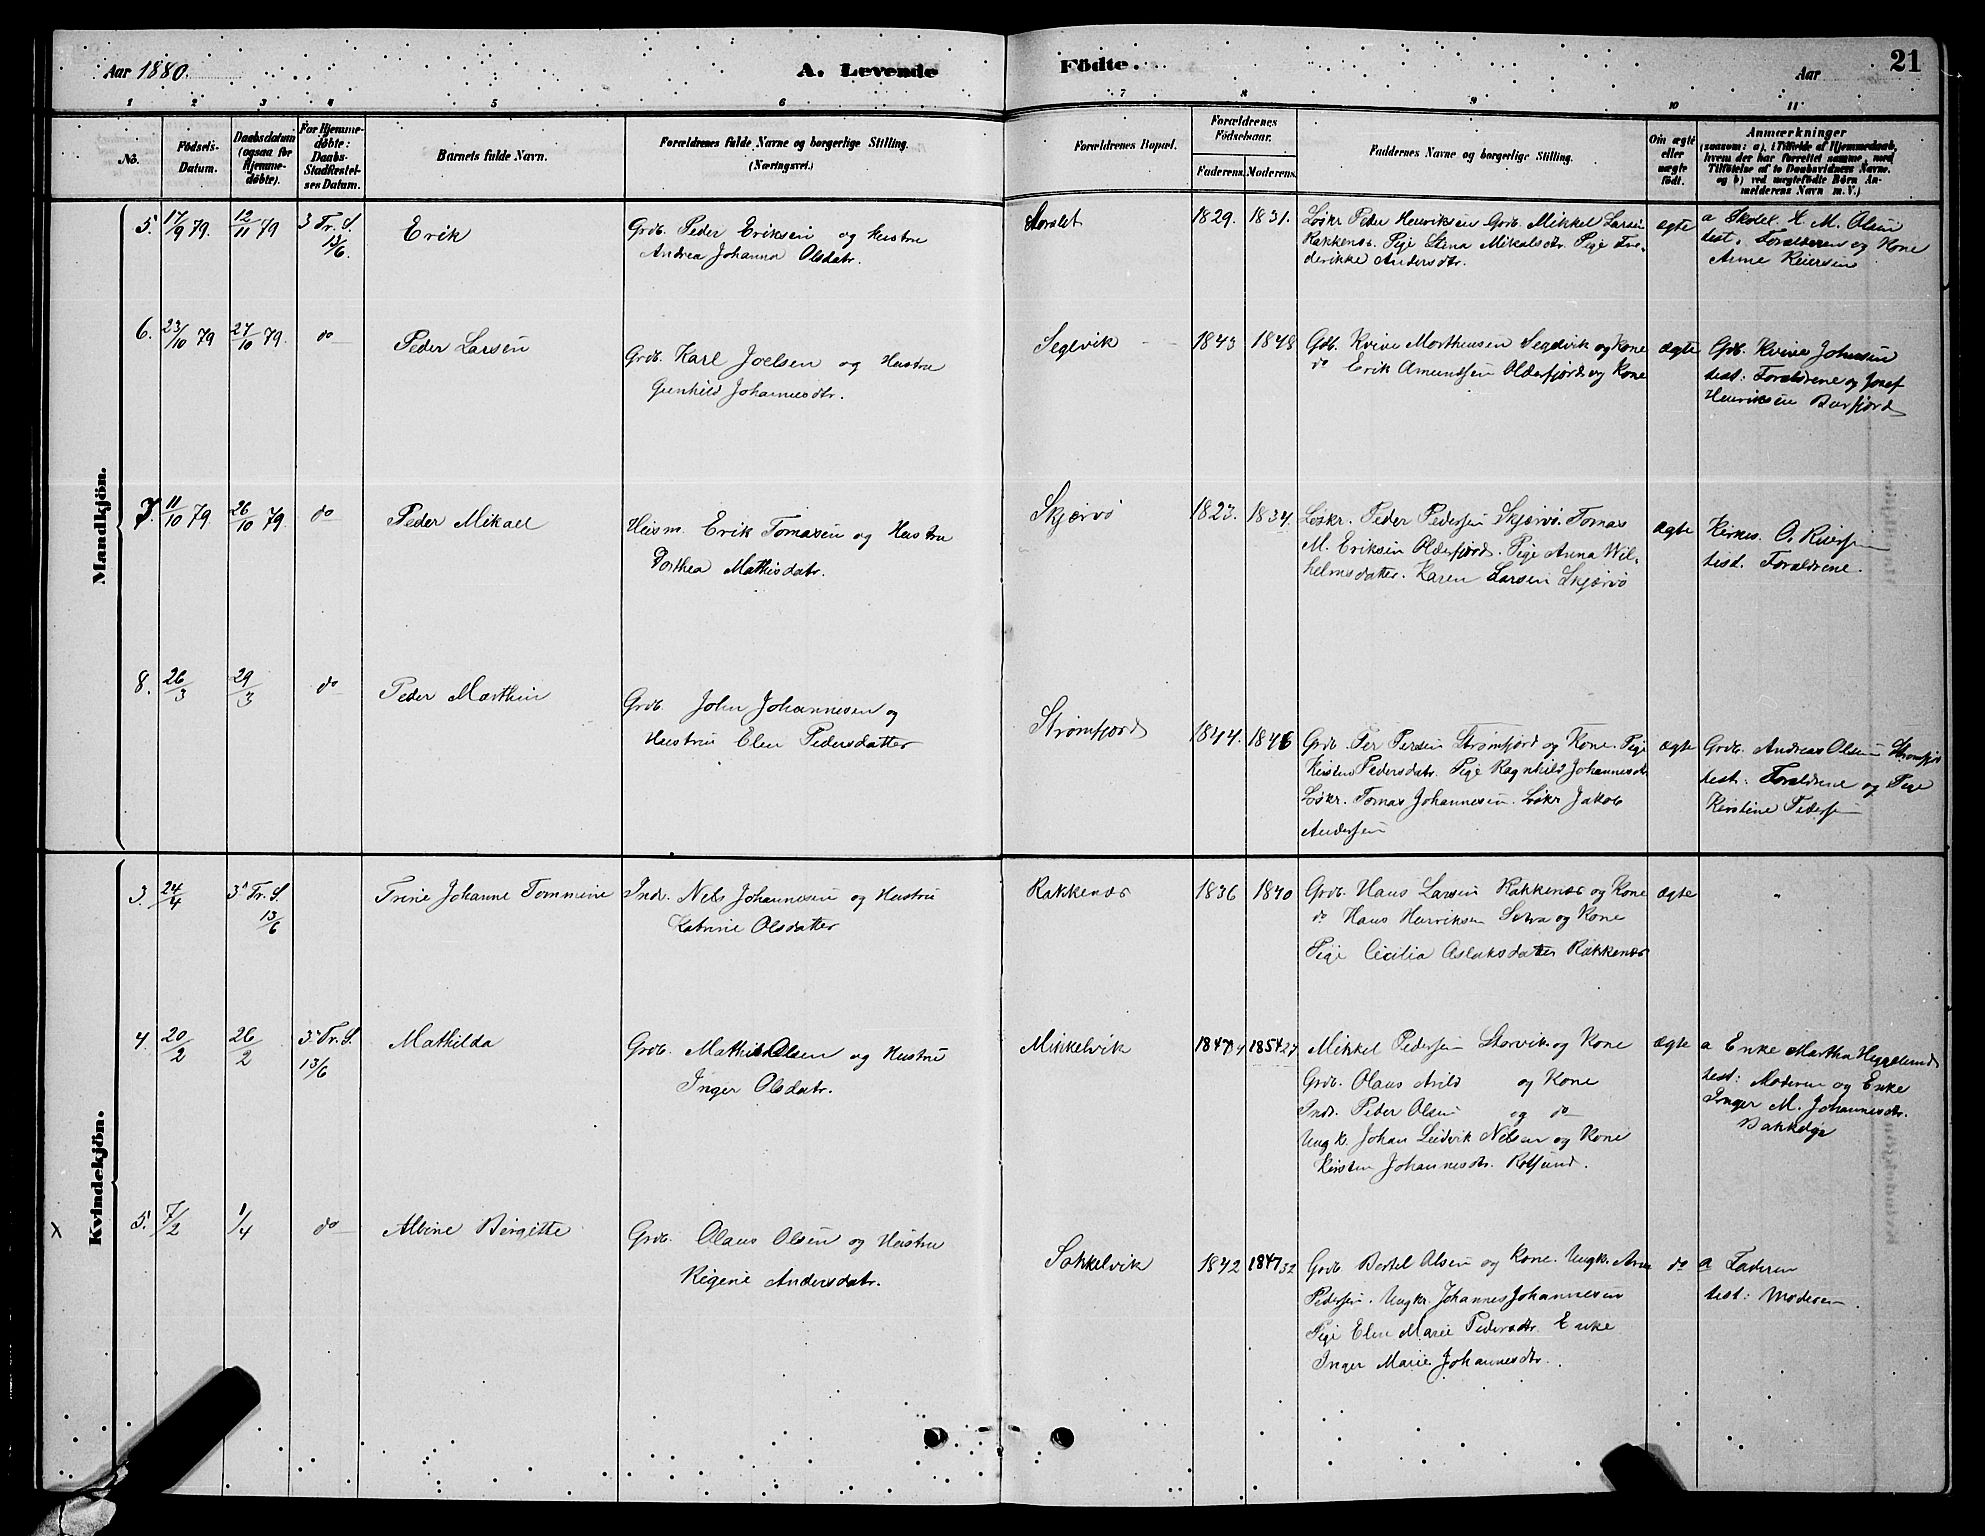 Aar 1880.
A. Levende
Födte.
Aar
21
1 2 3 4 5 6 7 8 9 10 11
No.
Födsels-
Datum.
Daabsdatum
(ogsaa for
Hjemme-
döbte).
For Hjemme-
döbte:
Daabs-
Stadfæstel-
ses Datum.
Barnets fulde Navn.
Forældrenes fulde Navne og borgerlige Stilling.
(Næringsvei.)
Forældrenes Bopæl.
Forældrenes
Födselsaar.
Faderens. Moderens.
Faddernes Navne og borgerlige Stilling.
Om ægte
eller
uægte
födt.
Anmærkninger
(saasom: a). i Tilfælde af Hjemmedaab,
hvem der har forrettet samme, med
Tilföielse af to Daabsvidners Navne.
og b) ved uægtefödte Börn An-
melderens Navn m. V.)
Mandkjön.
5. 17/9 79. 12/11 79 3 Tr. S. 13/6.
Erik
Grdb. Peder Eriksen og Hustru
Andrea Johanna Olsdatr.
Storslet
1829. 1831.
Løskr Peder Henriksen Grdb. Mikkel Larsen
Rakkenæs. Pige Stena Mikalsdtr. Pige Fre-
derikke Andersdtr.
ægte
a Skolel. H. M. Olsen
test. Forældrene og Kone
Anne Reiersen
6. 23/10 79 27/10 79. do
Peder Larsen
Grdb. Karl Joelsen og Hustru
Gunhild Johannesdtr.
Segelvik
1843 1848
Gdb. Kvive Morthensen Segelvik og Kone
do Erik Amundsen Olderfjord og Kone
ægte
Grdb. Kvive Johnsen
test: Forældrene og Josef
Henriksen Burfjord
7. 11/10 79. 26/10 79. do
Peder Mikael
Huism. Erik Tomasen og Hustru
Dorthea Mathisdatr.
Skjærvø
1823. 1834.
Løskr. Peder Pedersen Skjærvø. Tomas
M. Eriksen Olderfjord. Pige Anna Wil-
helmsdatter. Karen Larsen Skjærvø
ægte
Kirkes. O. Reiersen
test. Forældrene.
8. 26/3 29/3 do
Peder Marthin
Grdb. John Johannesen og
Hustru Elen Pedersdatter
Strømfjord
1844. 1846
Grdb. Per Persen Strømfjord og Kone. Pige
Kirsten Pedersdatr. Pige Ragnhild Johannesdtr.
Løskr. Tomas Johannesen. Løskr Jakob
Andersen
ægte
Grdb. Andreas Olsen Strømfjord
test: Forældrene og Pige
Kirstine Pedersen
Kvindekjön.
3. 24/4 3die Tr. S. 13/6
Trine Johanne Tommine
Indr. Nils Johannesen og Hustru
Katrine Olsdatter
Rakkenæs
1836 1840
Grdb. Hans Larsen Rakkenæs og Kone
do Hans Henriksen og Kone
Pige Cecilia Aslaksdatter Rakkenæs
ægte
"
4. 20/2 26/2 3. Tr. S. 13/6
Mathilda
Grdb. Mathis Olsen og Hustru
Inger Olsdatr.
Mikkelvik
1847 1854 27
Mikkel Pedersen Storvik og Kone
Grdb. Olaus Arild og Kone
Indr. Peder Olsen og do
Ungk. Johan Ludvik Nilsen og Kone
Kirsten Johannesdtr. Rotsund.
ægte
a Enke Martha Heggelund
test: Moderen og Enke
Inger M. Johannesdtr.
x 5. 7/2 1/4 do
Albine Birgitte
Grdb. Olaus Olsen og Hustru
Regine Andersdatr.
Sokkelvik
1842 1847 32
Grdb Bertel Olsen og Kone. Ungk. Arne
Pedersen. Ungkr. Johannes Johannesen
Pige Elen Marie Pedersdtr. Enke
Inger Marie Johannesdtr.
do
a Faderen
test: Moderen.